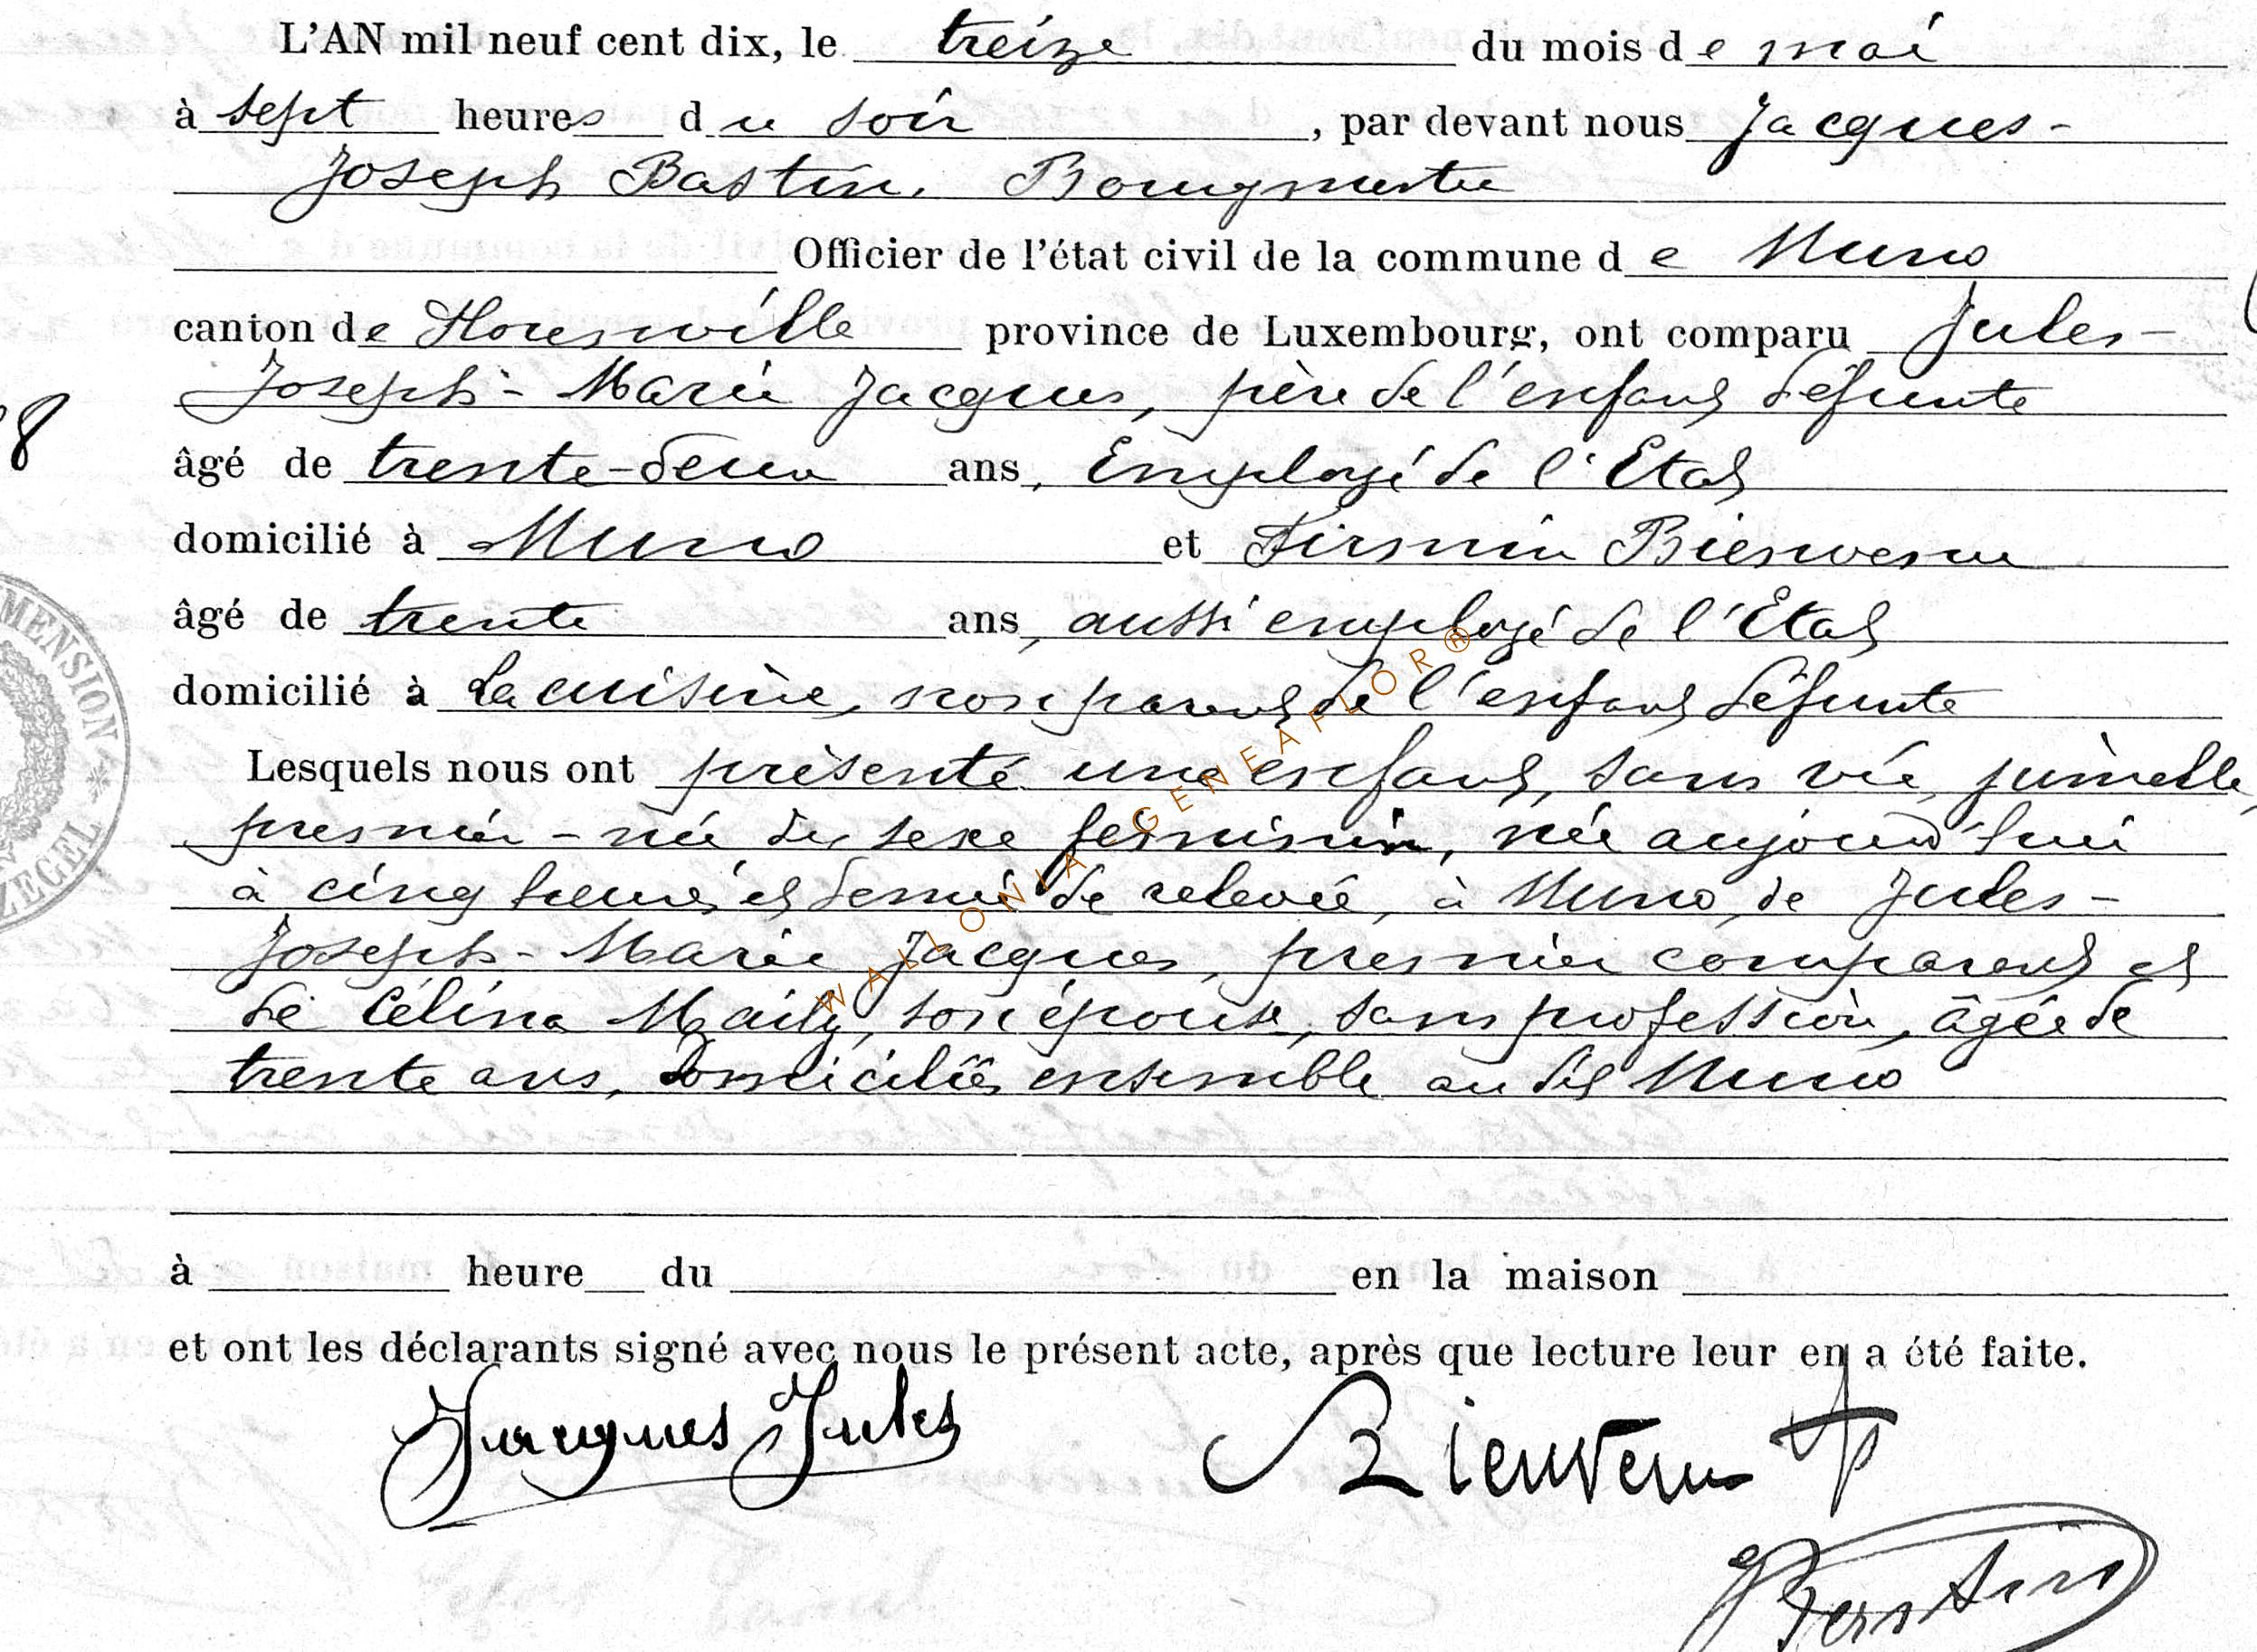 L'AN mil neuf cent dix, le treize du mois de mai
à sept heures du soir, par devant nous Jacques-
Joseph Bastin, Bourgmestre
Officier de l'état civil de la commune de Muno
canton de Florenville province de Luxembourg, ont comparu Jules-
Joseph-Marie Jacques, père de l'enfant défunte
âgé de trente-deux ans, Employé de l'Etat
domicilié à Muno et Firmin Bienvenu
âgé de trente ans, aussi employé de l'Etat
domicilié à Lacuisine, non parent de l'enfant défunte
Lesquels nous ont présenté une enfant, sans vie, jumelle,
premier-née du sexe féminin, née aujourd'hui
à cinq heures et demie de relevée, à Muno, de Jules-
Joseph-Marie Jacques, premier comparant et
de Célina Maily, son épouse, sans profession, âgée de
trente ans, domiciliés ensemble au dit Muno
à heure du en la maison
et ont les déclarants signé avec nous le présent acte, après que lecture leur en a été faite.
Jacques Jules
Bienvenu F
Bastin
8
MENSION * ZEGEL
WALLONIA GENEAFLOR®